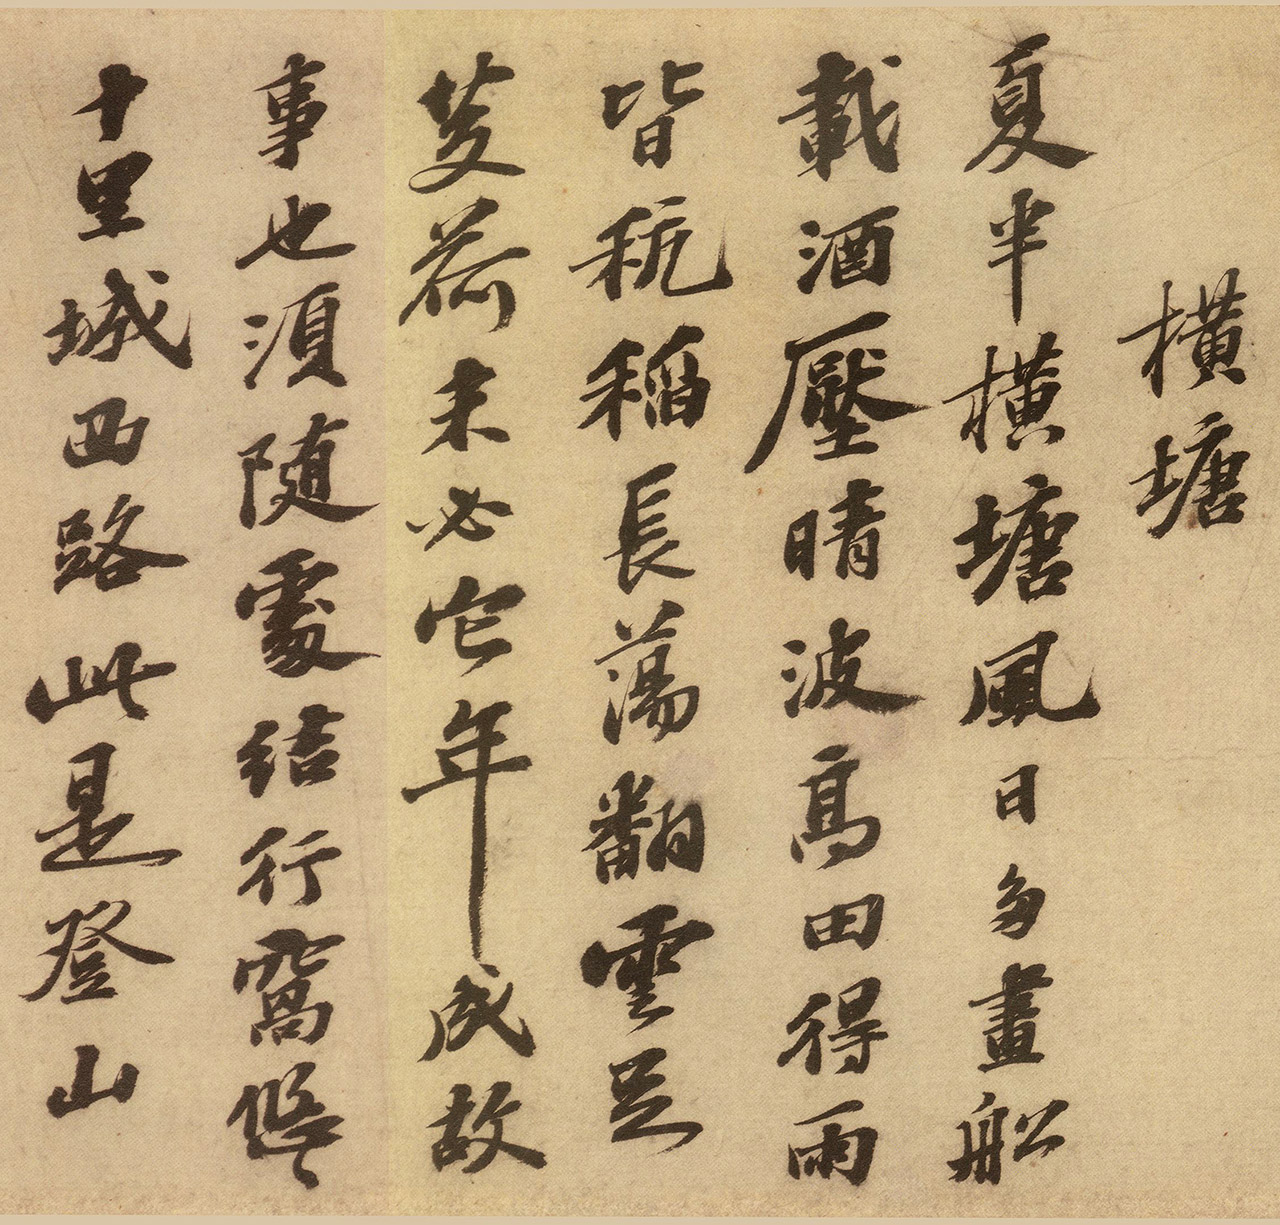 橫塘
夏半橫塘風日多畫船
載酒壓晴波高田得雨
皆秔稻長蕩翻雲足
芰荷未必它年成故
事也須随處結行窩悠々
十里城西路此是登山